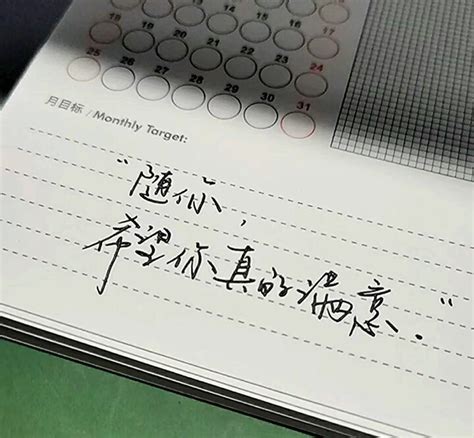 18 19 20 21 22 23 24
25 26 27 28 29 30 31
月目标 / Monthly Target:
“随你，
希望你真的满意.”